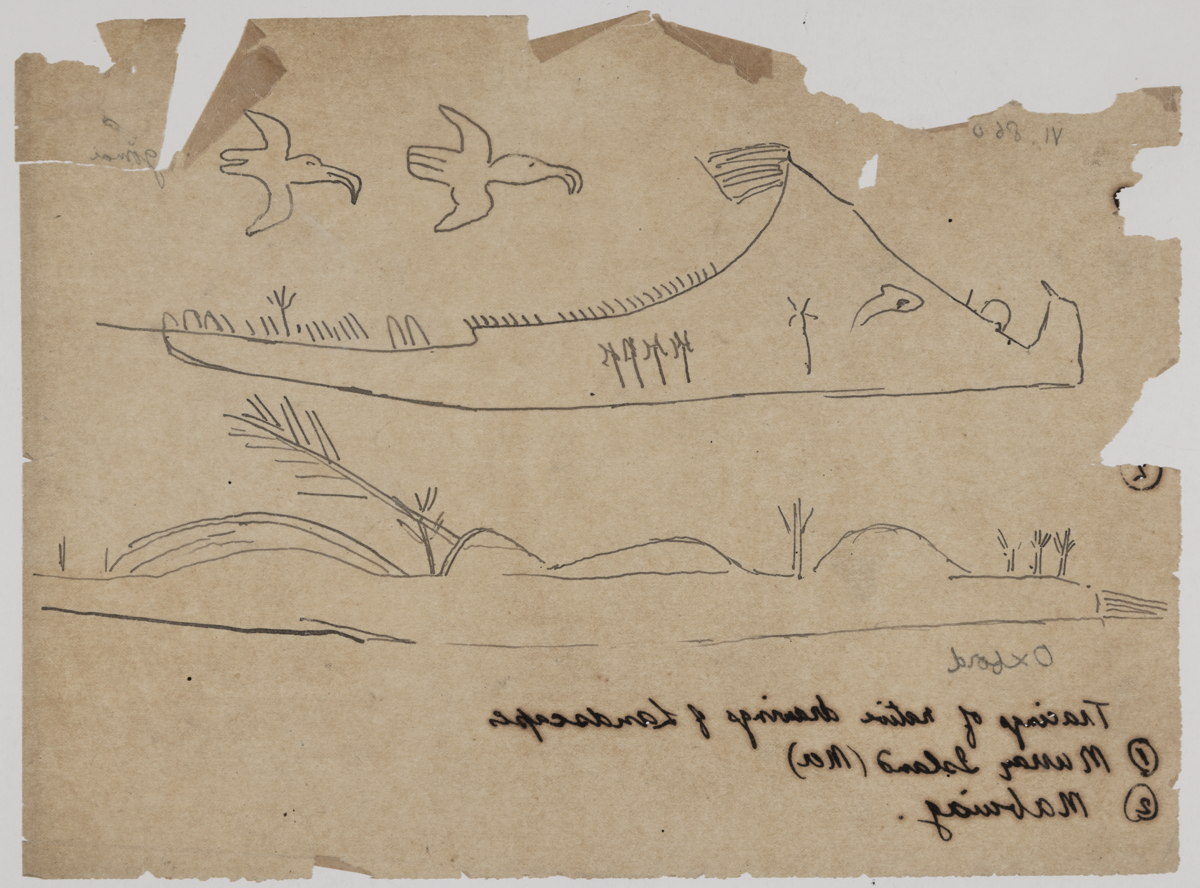 VI. 86 0
②
Oxford
Tracings of native drawings of Landscapes
① Murray Island (Mer)
② Mabuiag.